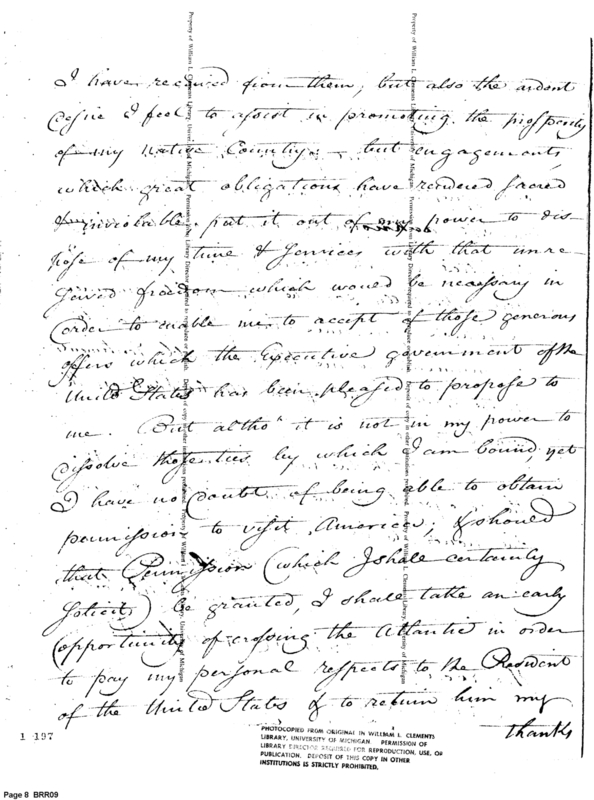 I have received from them, but also the ardent
desire I feel to assist in promoting the prosperity
of my native Country — but engagements,
which great obligations have rendered sacred
& inviolable, put it out of my power to dis-
pose of my time & Services with that unre-
served freedom which would be necessary in
order to enable me to accept of those generous
offers which the Executive government of the
United States has been pleased to propose to
me. But altho' it is not in my power to
dissolve those ties by which I am bound, yet
I have no doubt of being able to obtain
permission to visit America; & should
that Permission (which I shall certainly
solicit) be granted, I shall take an early
opportunity of crossing the Atlantic in order
to pay my personal respects to the President
of the United States & to return him my
thanks
1 197
PHOTOCOPIED FROM ORIGINAL IN WILLIAM L. CLEMENTS
LIBRARY, UNIVERSITY OF MICHIGAN. PERMISSION OF
LIBRARY DIRECTOR REQUIRED FOR REPRODUCTION, USE, OR
PUBLICATION. DEPOSIT OF THIS COPY IN OTHER
INSTITUTIONS IS STRICTLY PROHIBITED.
Page 8 BRR09
Property of William L. Clements Library, University of Michigan. Permission
Property of William L. Clements Library, University of Michigan.